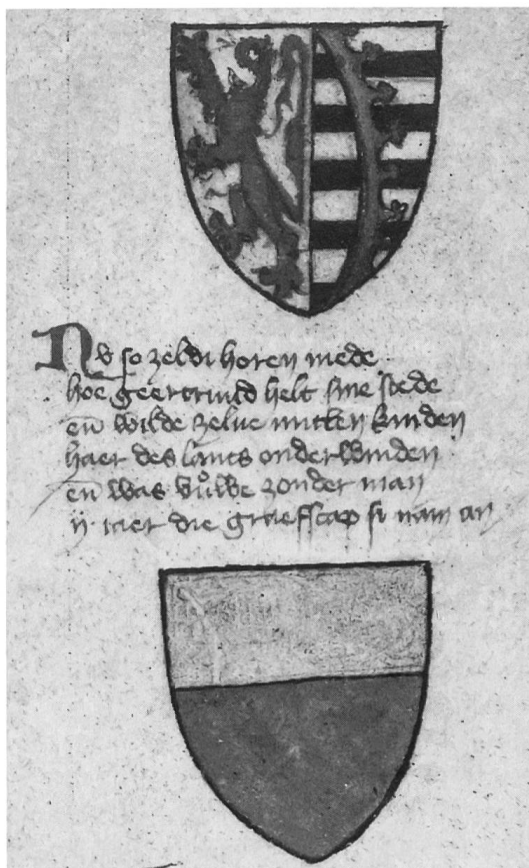 Nv so zeldi horen mede
hoe geertruud helt sine stede
en̄ wilde zelue mitten kinden
haer des lants onderwinden
en̄ was vuͦwe zonder man
ij iaer die graefscap si nam an